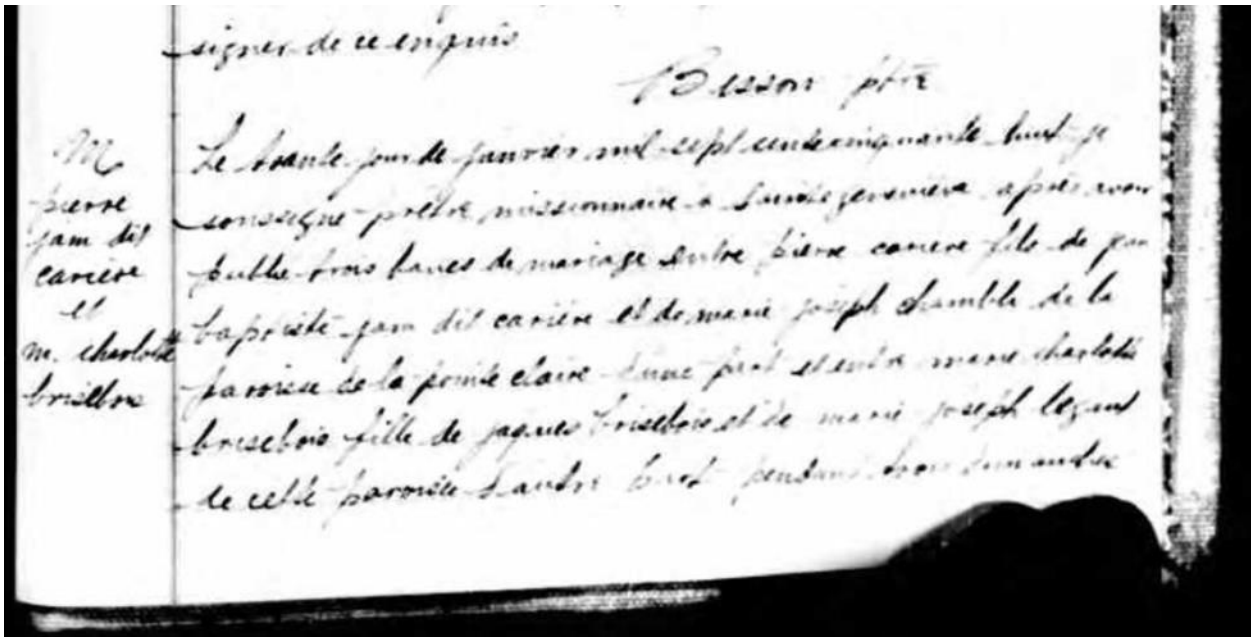 signer de ce enquis
Bisson ptre
M
pierre
jam dit
cariere
et
m. charlotte
brisebois
Le trante jour de janvier mil sept cents cinquante huit je
soussigné prêtre missionnaire a Sainte genevieve apres avoir
publié trois bancs de mariage entre pierre cariere fils de jean
baptiste jam dit cariere et de marie joseph chamble de la
paroisse de la pointe claire d'une part et entre marie charlotte
brisebois fille de jaques brisebois et de marie joseph
de cette paroisse d'autre part pendant trois dimanches